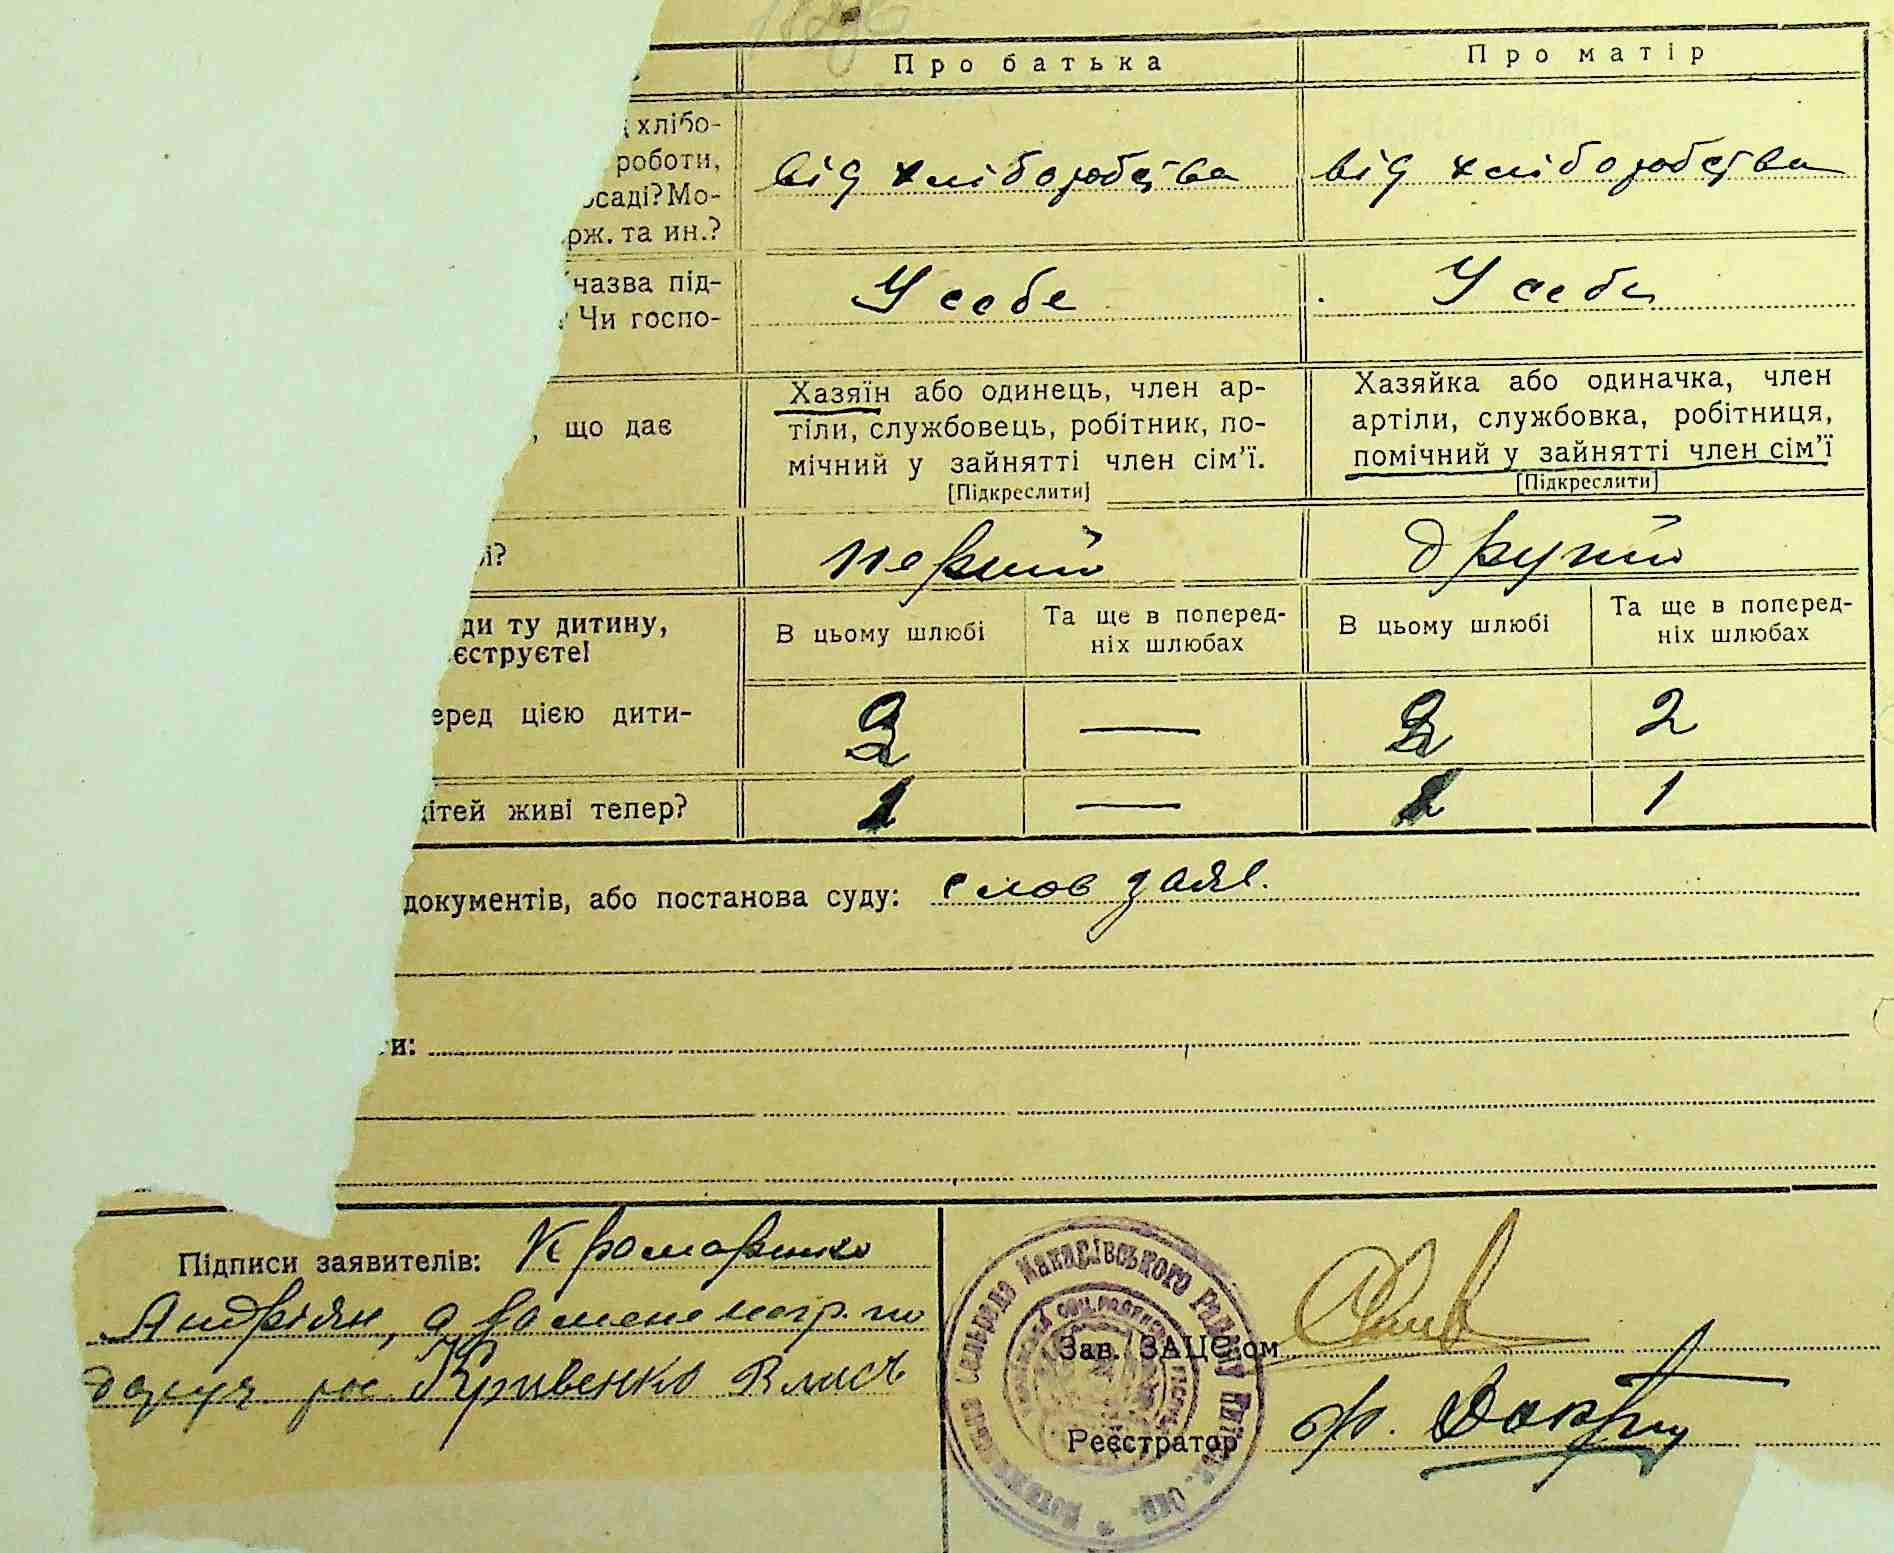 Про батька Про матір
хлібо-
роботи,
осаді? Мо-
рж. та ин.?
від хліборобства від хліборобства
назва під-
Чи госпо-
У себе У себе
, що дає
Хазяїн або одинець, член ар-
тіли, службовець, робітник, по-
мічний у зайнятті член сім'ї.
[Підкреслити]
Хазяйка або одиначка, член
артіли, службовка, робітниця,
помічний у зайнятті член сім'ї
[Підкреслити]
і?
перший другий
ди ту дитину,
еєструєте!
В цьому шлюбі
Та ще в поперед-
ніх шлюбах
В цьому шлюбі
Та ще в поперед-
ніх шлюбах
еред цією дити-
— 2
ітей живі тепер? 1 — 1 1
документів, або постанова суду: слов заяв.
ти:
Підписи заявителів: Крамаренко
Андріян, а за мене негр. по
даруч рос Кривенко Власъ
Сельрада Макарівського Району Київськ. Окр.
Зав. ЗАЦСом
Реєстратор